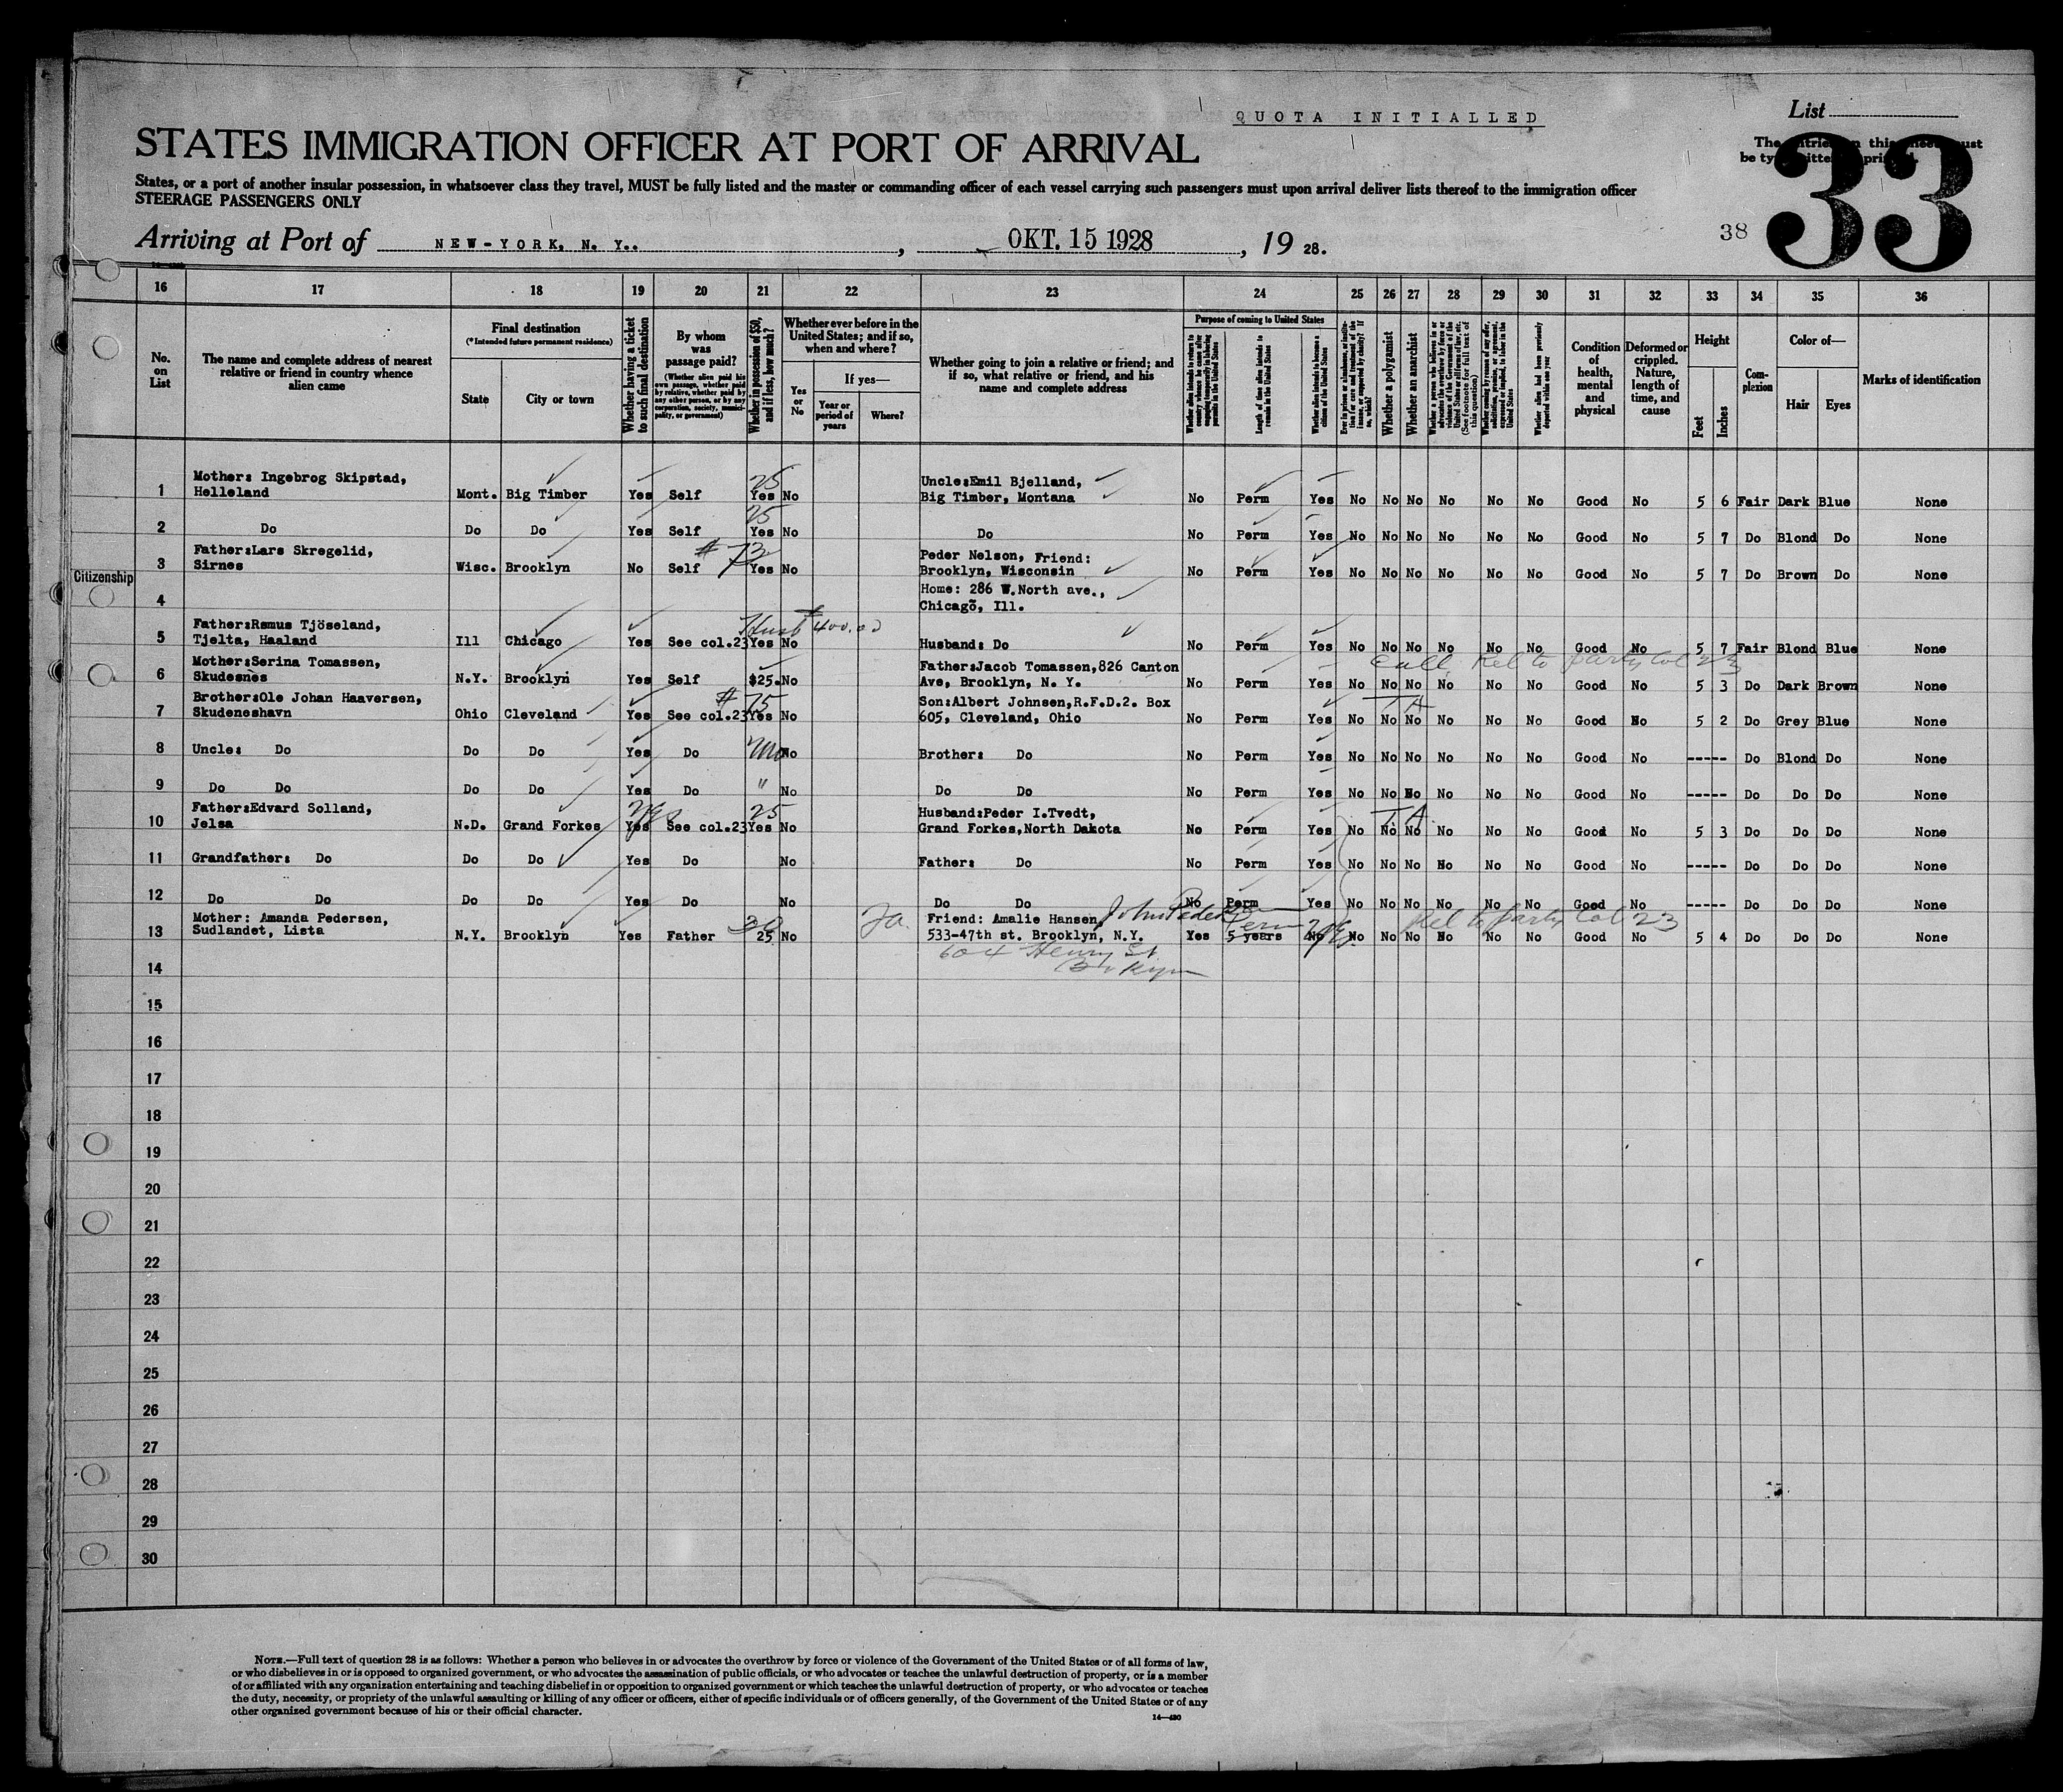 QUOTA INITIALLED
List
STATES IMMIGRATION OFFICER AT PORT OF ARRIVAL
States, or a port of another insular possession, in whatsoever class they travel, MUST be fully listed and the master or commanding officer of each vessel carrying such passengers must upon arrival deliver lists thereof to the immigration officer
STEERAGE PASSENGERS ONLY
33
38
Arriving at Port of NEW-YORK, N. Y.. , OKT. 15 1928 , 19 28.
16 17 18 19 20 21 22 23 24 25 26 27 28 29 30 31 32 33 34 35 36
No. on List
The name and complete address of nearest relative or friend in country whence alien came
Final destination
(*Intended future permanent residence)
State
City or town
Whether having a ticket to such final destination
By whom was passage paid?
(Whether alien paid his own passage, whether paid by relative, whether paid by any other person, or by any corporation, society, municipality, or government)
Whether in possession of $50, and if less, how much?
Whether ever before in the United States; and if so, when and where?
Yes or No
If yes—
Year or period of years
Where?
Whether going to join a relative or friend; and if so, what relative or friend, and his name and complete address
Purpose of coming to United States
Length of time alien intends to remain in the United States
Whether alien intends to become a citizen of the United States
Whether a polygamist
Whether an anarchist
Whether alien had been previously deported within one year
Condition of health, mental and physical
Deformed or crippled. Nature, length of time, and cause
Height
Feet
Inches
Complexion
Color of—
Hair
Eyes
Marks of identification
Mother: Ingebrog Skipstad, 25 Uncle:Emil Bjelland,
1 Helleland Mont. Big Timber Yes Self Yes No Big Timber, Montana No Perm Yes No No No No No No Good No 5 6 Fair Dark Blue None
25
2 Do Do Do Yes Self Yes No Do No Perm Yes No No No No No No Good No 5 7 Do Blond Do None
Father:Lars Skregelid, # 73 Peder Nelson, Friend:
3 Sirnes Wisc. Brooklyn No Self Yes No Brooklyn, Wisconsin No Perm Yes No No No No No No Good No 5 7 Do Brown Do None
Citizenship
4 Home: 286 W.North ave.,
Chicago, Ill.
Father:Rsmus Tjöseland, 400.00
5 Tjelta, Haaland Ill Chicago Yes See col.23 Yes No Husband: Do No Perm Yes No No No No No No Good No 5 7 Fair Blond Blue None
Mother:Serina Tomassen, Father:Jacob Tomassen,826 Canton Rel to party Col 23
6 Skudesnes N.Y. Brooklyn Yes Self $25. No Ave, Brooklyn, N. Y. No Perm Yes No No No No No No Good No 5 3 Do Dark Brown None
Brother:Ole Johan Haaversen, # 75 Son:Albert Johnsen,R.F.D.2. Box T A
7 Skudeneshavn Ohio Cleveland Yes See col.23 Yes No 605, Cleveland, Ohio No Perm Yes No No No No No No Good No 5 2 Do Grey Blue None
8 Uncle: Do Do Do Yes Do No Brother: Do No Perm Yes No No No No No No Good No ----- Do Blond Do None
9 Do Do Do Do Yes Do " No Do Do No Perm Yes No No No No No No Good No ----- Do Do Do None
Father:Edvard Solland, yes 25 Husband:Peder I.Tvedt, T A
10 Jelsa N.D. Grand Forkes Yes See col.23 Yes No Grand Forkes,North Dakota No Perm Yes No No No No No No Good No 5 3 Do Do Do None
11 Grandfather: Do Do Do Yes Do No Father: Do No Perm Yes No No No No No No Good No ----- Do Do Do None
12 Do Do Do Do Yes Do No Do Do No Perm Yes No No No No No No Good No ----- Do Do Do None
Mother: Amanda Pedersen, 30 Fa. Friend: Amalie Hansen, John Pedersen Perm Yes Rel to party Col 23
13 Sudlandet, Lista N.Y. Brooklyn Yes Father 25 No 533-47th st. Brooklyn, N.Y. Yes 5 years No No No No No No No Good No 5 4 Do Do Do None
604 Henry St
Bklyn
14
15
16
17
18
19
20
21
22
23
24
25
26
27
28
29
30
NOTE.—Full text of question 28 is as follows: Whether a person who believes in or advocates the overthrow by force or violence of the Government of the United States or of all forms of law,
or who disbelieves in or is opposed to organized government, or who advocates the assassination of public officials, or who advocates or teaches the unlawful destruction of property, or is a member
of or affiliated with any organization entertaining and teaching disbelief in or opposition to organized government or which teaches the unlawful destruction of property, or who advocates or teaches
the duty, necessity, or propriety of the unlawful assaulting or killing of any officer or officers, either of specific individuals or of officers generally, of the Government of the United States or of any
other organized government because of his or their official character.
14—430